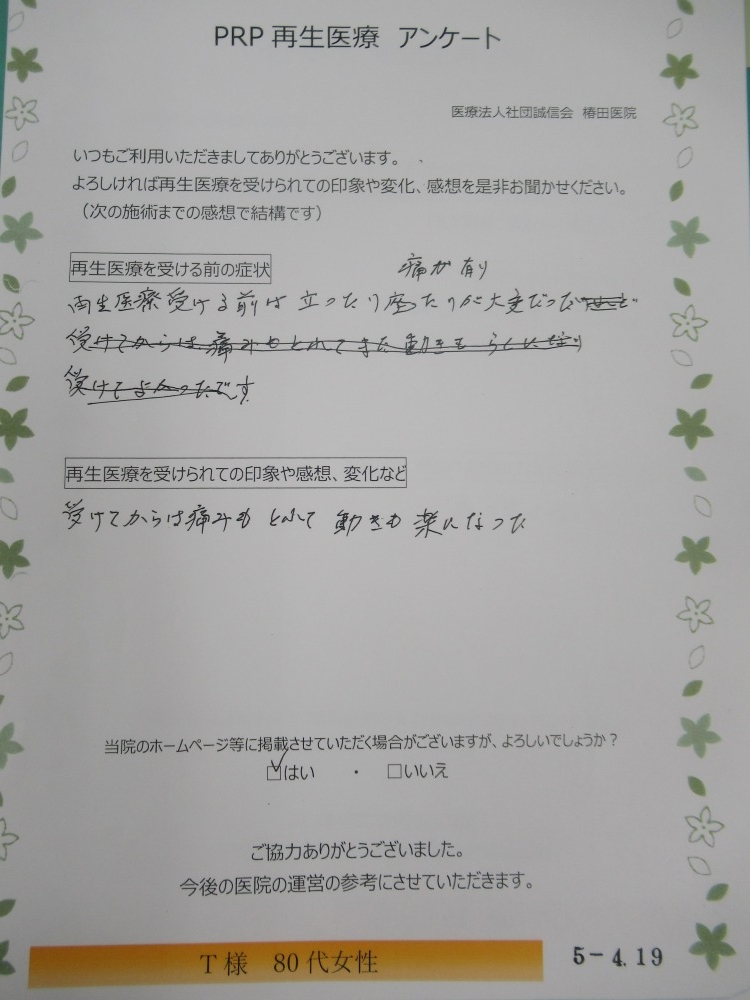 PRP 再生医療 アンケート
医療法人社団誠信会 椿田医院
いつもご利用いただきましてありがとうございます。
よろしければ再生医療を受けられての印象や変化、感想を是非お聞かせください。
（次の施術までの感想で結構です）
再生医療を受ける前の症状
痛が有り
再生医療受ける前は立ったり座たりが大変だった
受けてからは痛みもとれてまた動きもらくになり
受けてよかったです
再生医療を受けられての印象や感想、変化など
受けてからは痛みもとれて動きも楽になった
当院のホームページ等に掲載させていただく場合がございますが、よろしいでしょうか？
☑はい ・ □いいえ
ご協力ありがとうございました。
今後の医院の運営の参考にさせていただきます。
T様 80代女性
5-4.19